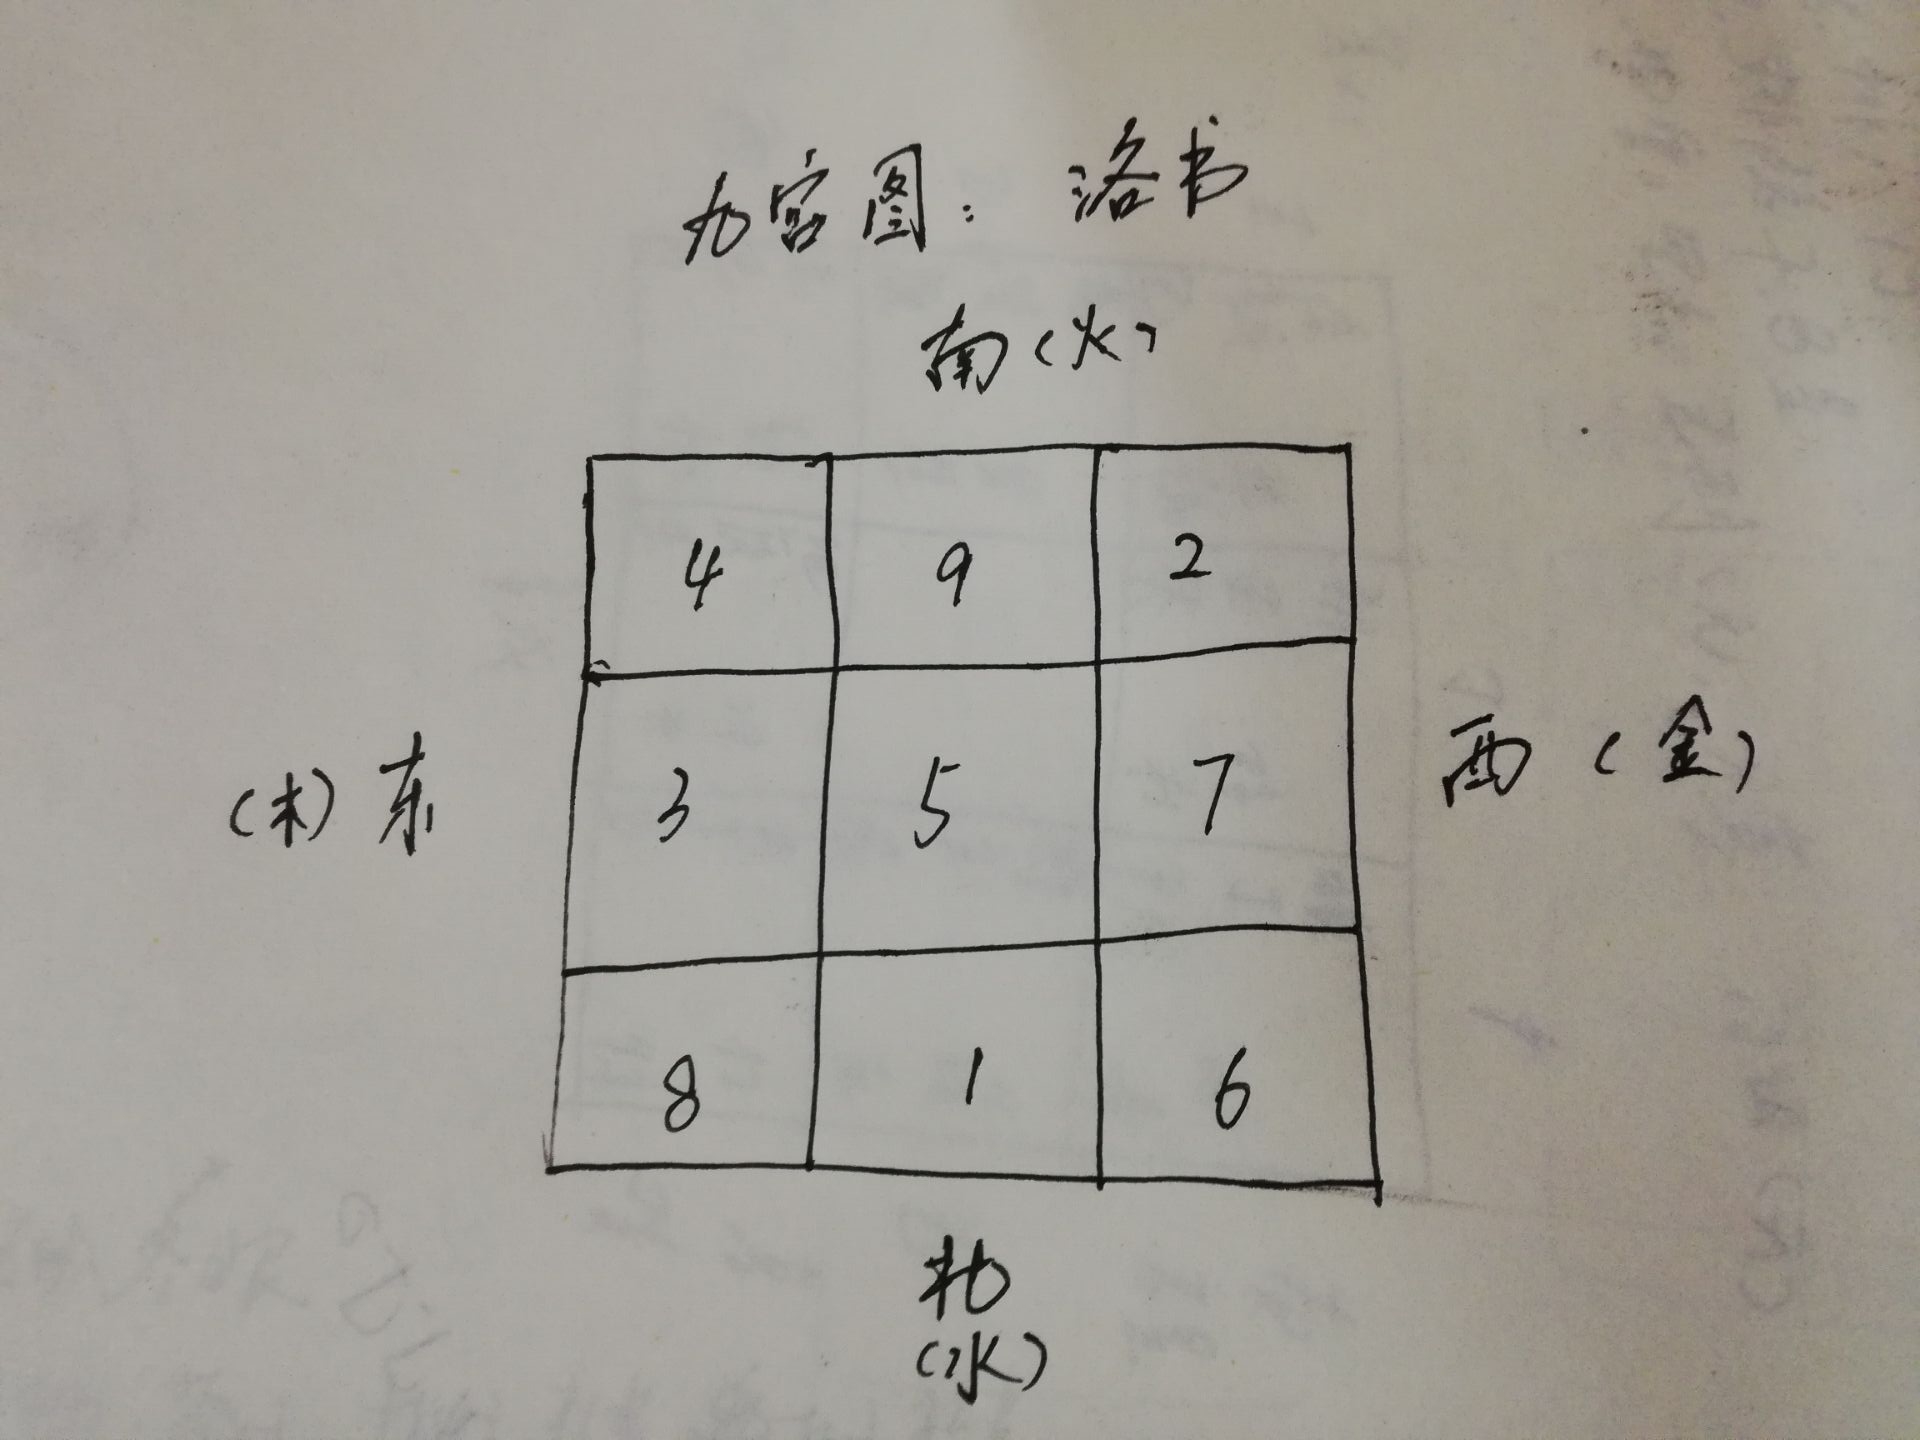 九宫图：洛书
南（火）
4 9 2
（木）东 3 5 7 西（金）
8 1 6
北
（水）